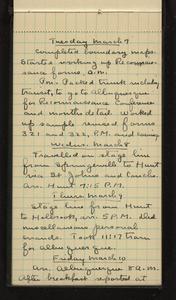 Tuesday March 7
Completed boundary maps.
Started working up Reconnais-
sance forms, a.m.
Pm. Packed trunk, includg
transit, to go to Albuquerque
for Reconnaissance Conference
and months detail. Worked
up sample revised forms
321 and 322, P.M. and evening
Wednes. March 8
Travelled on stage line
from Springerville to Hunt
via St Johns and Concho.
Arr. Hunt 7:15 P.M.
Thurs. March 9
Stage line from Hunt
to Holbrook, arr. 5 P.M. Did
miscellaneous personal
errands. Took 11:17 train
for Albuquerque.
Friday March 10
Arr. Albuquerque 8 a.m.
After breakfast reported at